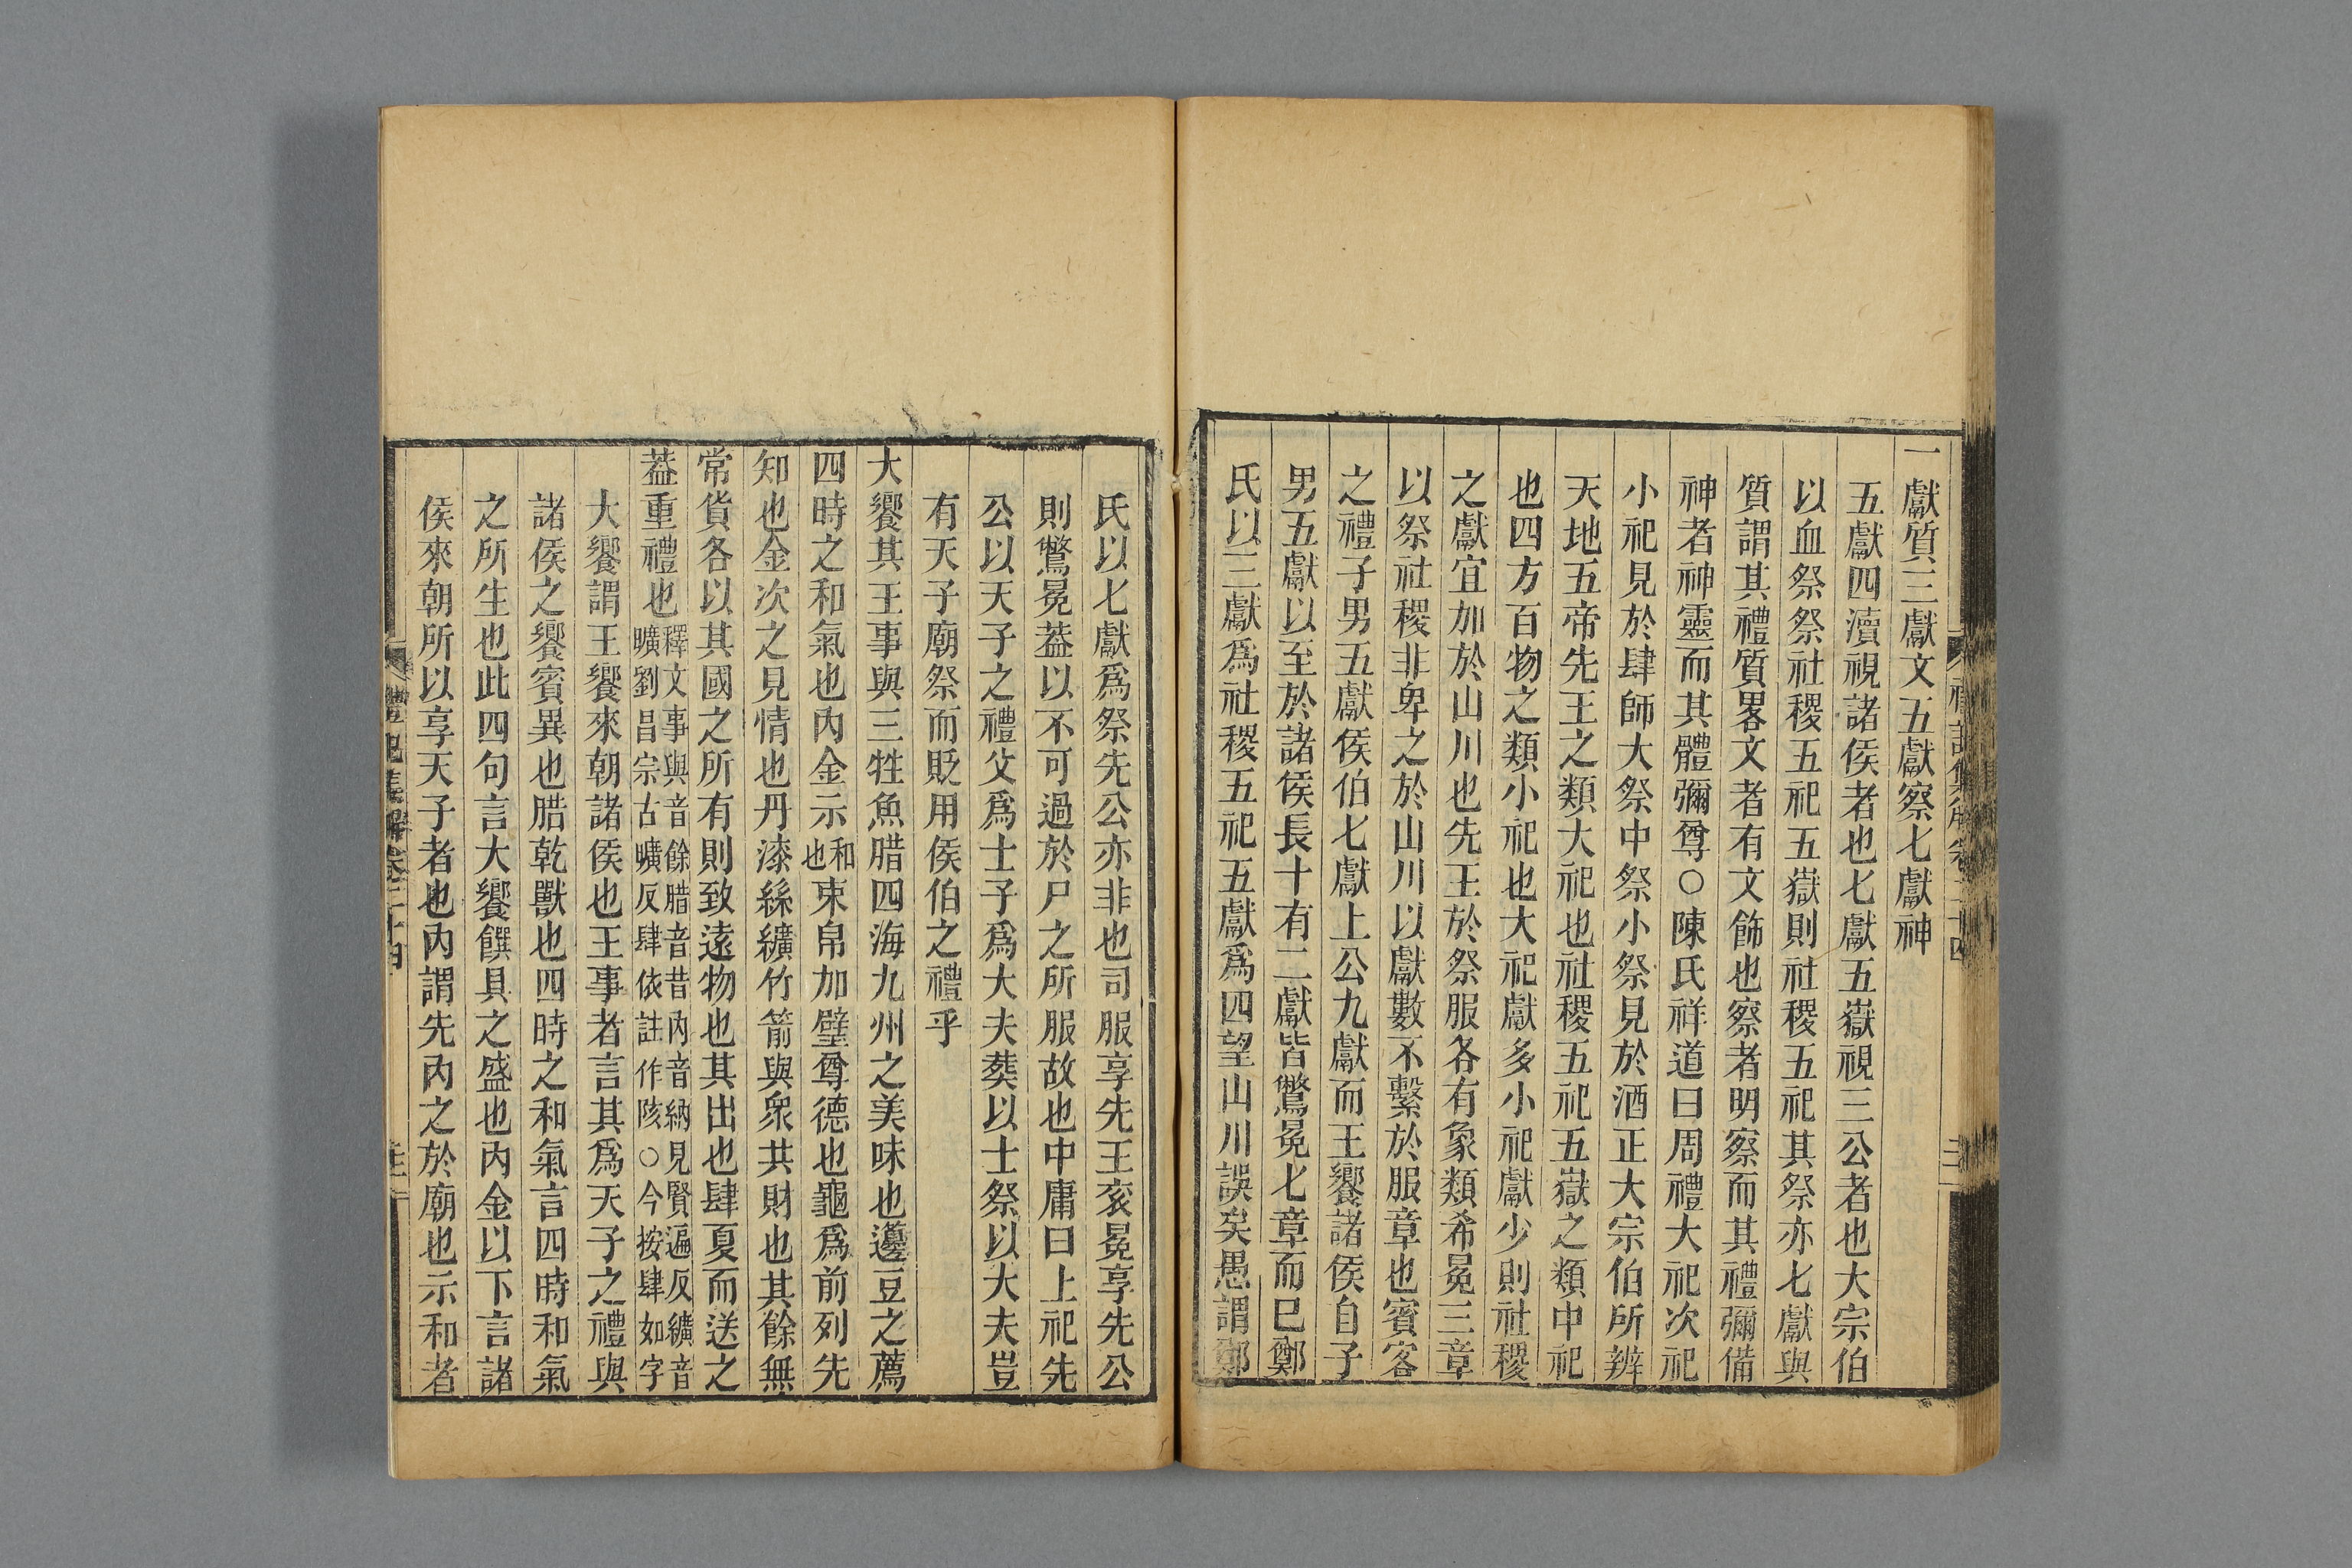 一獻質三獻文五獻察七獻神
五獻四瀆視諸侯者也七獻五嶽視三公者也大宗伯
以血祭祭社稷五祀五嶽則社稷五祀其祭亦七獻與
質謂其禮質畧文者有文飾也察者明察而其禮彌備
神者神靈而其體彌尊○陳氏祥道曰周禮大祀次祀
小祀見於肆師大祭中祭小祭見於酒正大宗伯所辨
天地五帝先王之類大祀也社稷五祀五嶽之類中祀
也四方百物之類小祀也大祀獻多小祀獻少則社稷
之獻宜加於山川也先王於祭服各有象類希冕三章
以祭社稷非卑之於山川以獻數不繫於服章也賓客
之禮子男五獻侯伯七獻上公九獻而王饗諸侯自子
男五獻以至於諸侯長十有二獻皆鷩冕七章而已鄭
氏以三獻爲社稷五祀五獻爲四望山川誤矣愚謂鄭
氏以七獻爲祭先公亦非也司服享先王衮冕享先公
則鷩冕葢以不可過於尸之所服故也中庸曰上祀先
公以天子之禮父爲士子爲大夫葬以士祭以大夫豈
有天子廟祭而貶用侯伯之禮乎
大饗其王事與三牲魚腊四海九州之美味也籩豆之薦
四時之和氣也內金示和也束帛加璧尊德也龜爲前列先
知也金次之見情也丹漆絲纊竹箭與衆共財也其餘無
常貨各以其國之所有則致遠物也其出也肆夏而送之
葢重禮也釋文事與音餘腊音昔內音納見賢遍反纊音
曠劉昌宗古曠反肆依註作陔○今按肆如字
大饗謂王饗來朝諸侯也王事者言其爲天子之禮與
諸侯之饗賓異也腊乾獸也四時之和氣言四時和氣
之所生也此四句言大饗饌具之盛也內金以下言諸
侯來朝所以享天子者也內謂先內之於廟也示和者
禮記集解卷二十四